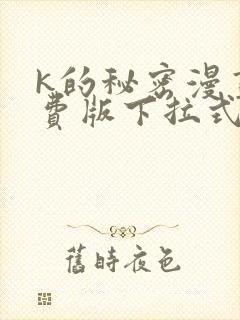 K的秘密漫
费版下拉式
舊時夜色